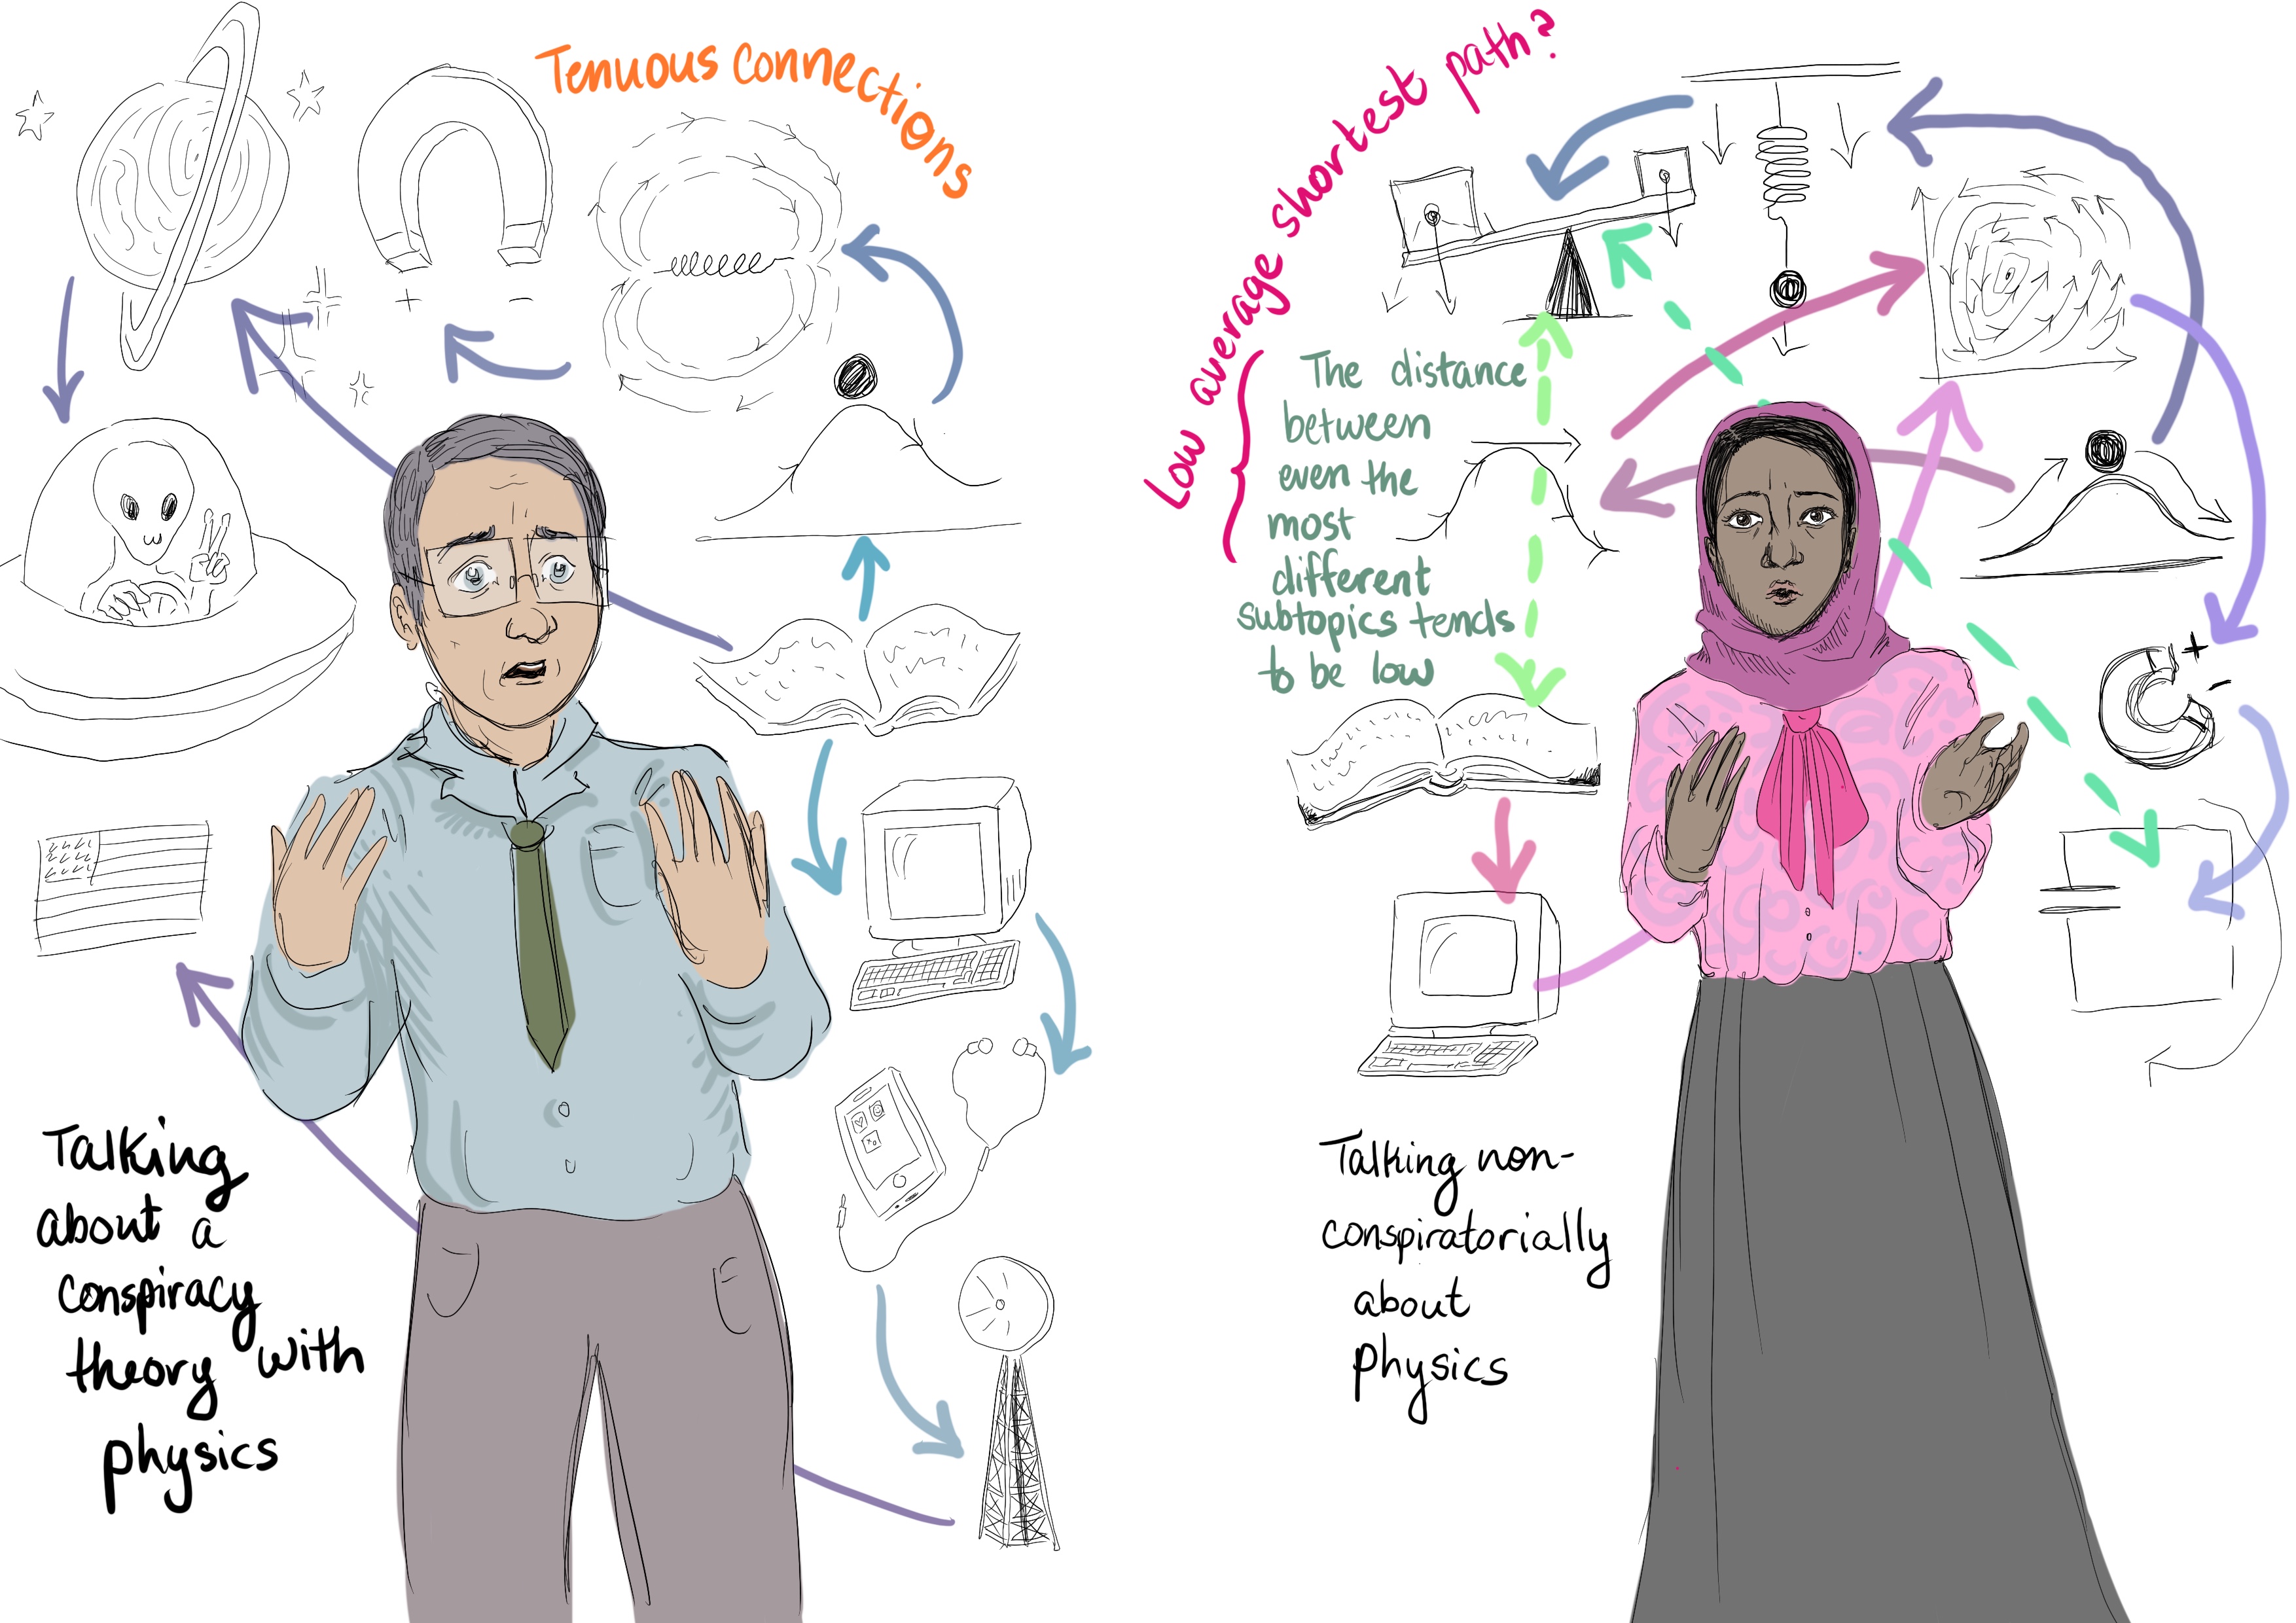 Tenuous connections
Talking
about a
conspiracy
theory with
physics
Low average shortest path?
The distance
between
even the
most
different
subtopics tends
to be low
Talking non-
conspiratorially
about
physics
+
-
+
-